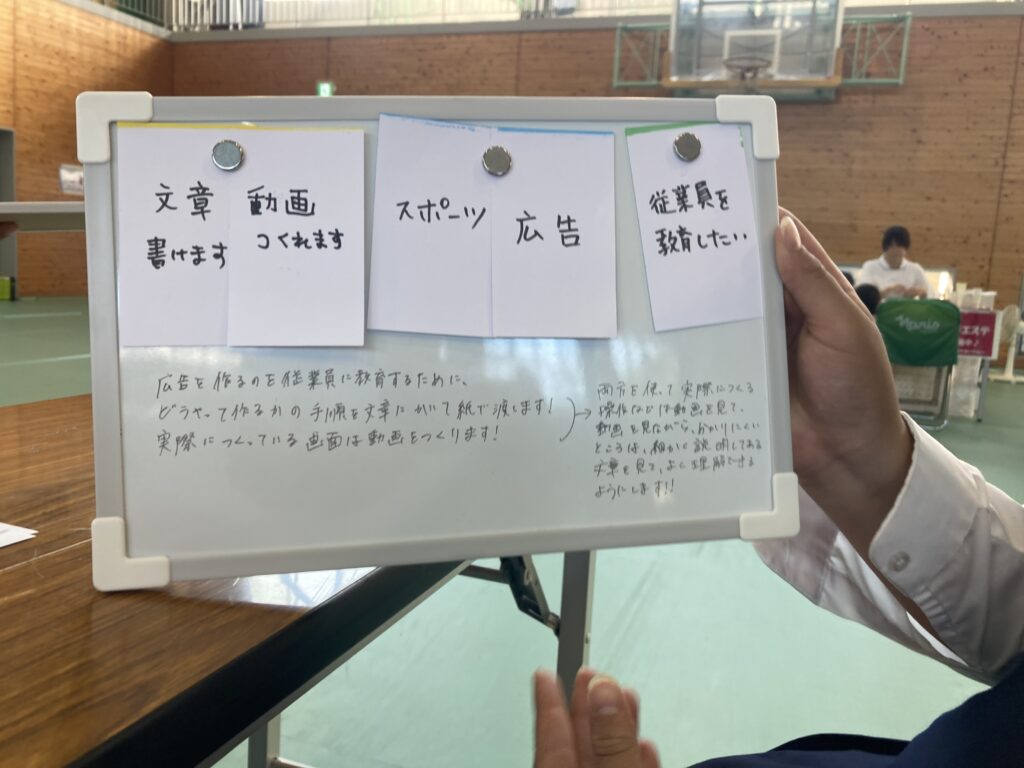 文章
書けます
動画
つくれます
スポーツ
広告
従業員を
教育したい
広告を作るのを従業員に教育するために、
どうやって作るかの手順を文章にかいて紙で渡します!
実際につくっている画面は動画をつくります!
→両方を使って実際につくる
操作などは動画を見て、
動画を見ながら、わかりにくい
ところは、細かく説明してある
文章を見て、よく理解できる
ようにします!!
nario
エステ